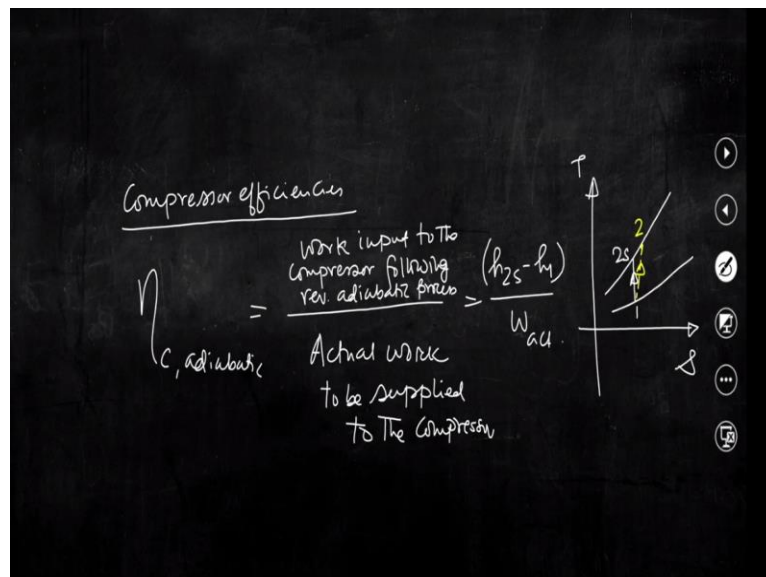 Compressor efficiencies
η c, adiabatic = work input to the
compressor following
rev. adiabatic process
= (h2s - h1)
Wact.
Actual work
to be supplied
to the compressor
T
2
2s
1
S